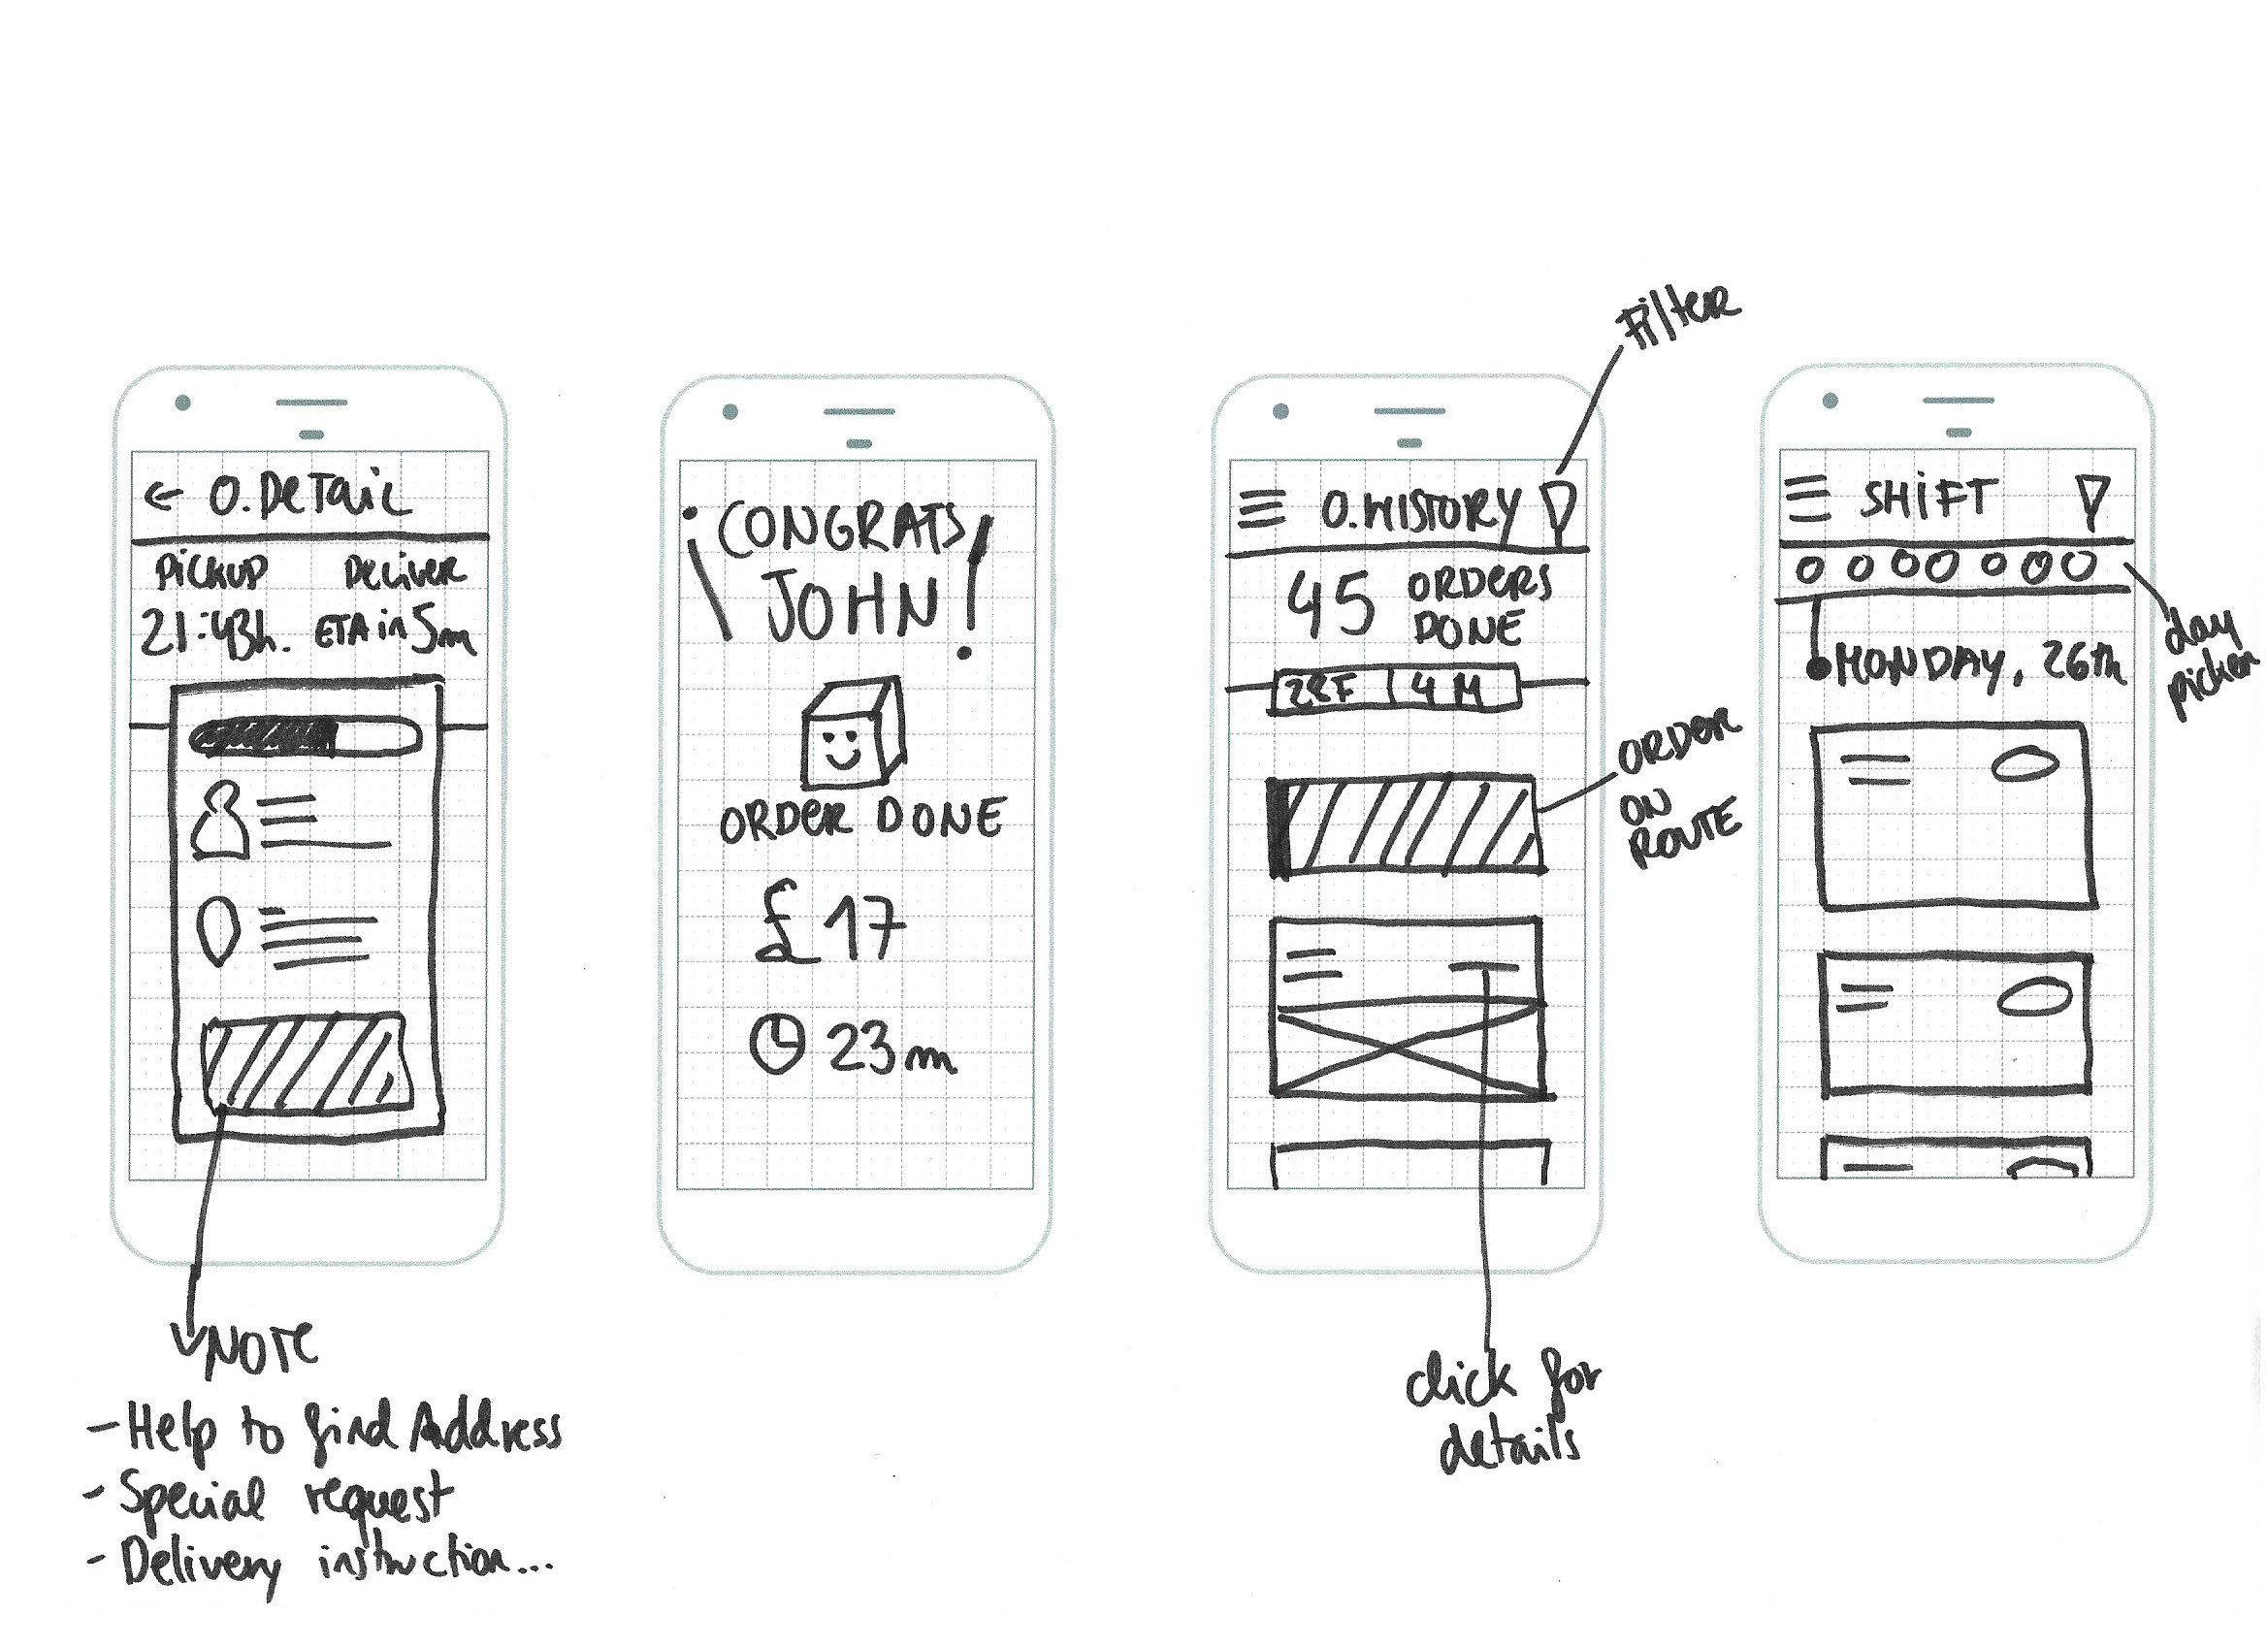 ← O. Detail
Pickup Deliver
21:43h. ETA in 5m
Note
- Help to find Address
- Special request
- Delivery instruction...
¡CONGRATS
JOHN!
ORDER DONE
£17
23m
Filter
O. HISTORY
45 ORDERS
DONE
4 M
ORDER
ON
ROUTE
click for
details
SHIFT
day
picker
MONDAY, 26th